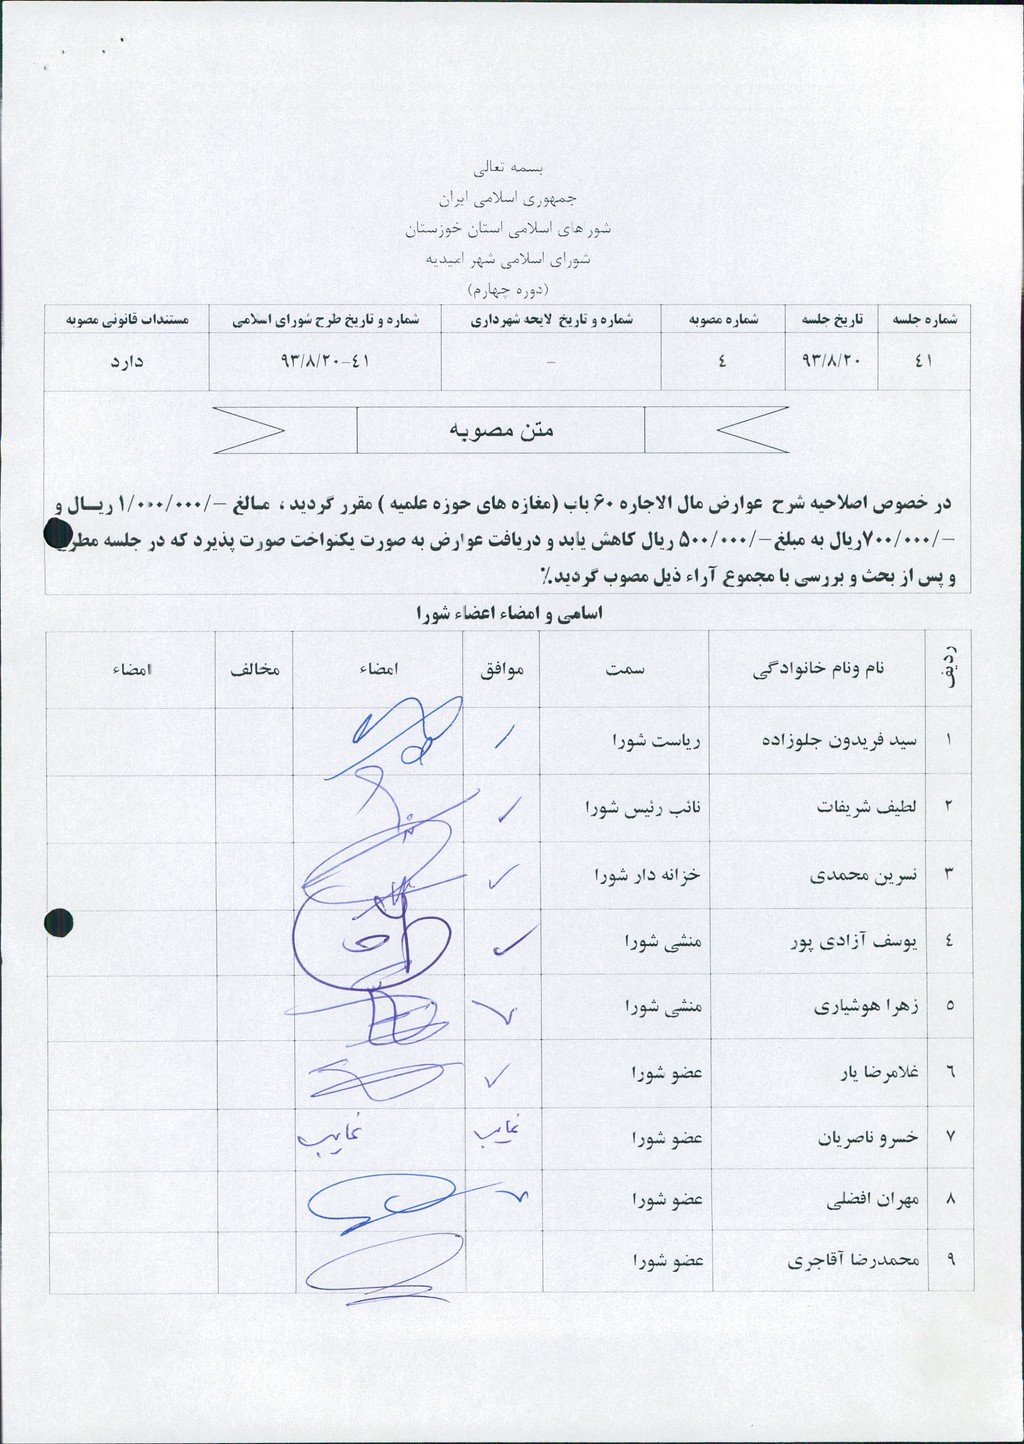 بسمه تعالی
جمهوری اسلامی ایران
شورهای اسلامی استان خوزستان
شورای اسلامی شهر امیدیه
(دوره چهارم)
شماره جلسه تاریخ جلسه شماره مصوبه شماره و تاریخ لایحه شهرداری شماره و تاریخ طرح شورای اسلامی مستندات قانونی مصوبه
٤١ ٩٣/٨/٢٠ ٤ - ٤١-٩٣/٨/٢٠ دارد
متن مصوبه
در خصوص اصلاحیه شرح عوارض مال الاجاره ٦٠ باب (مغازه های حوزه علمیه ) مقرر گردید ، مبالغ -/١/٠٠٠/٠٠٠ ریال و
-/٧٠٠/٠٠٠ریال به مبلغ-/٥٠٠/٠٠٠ ریال کاهش یابد و دریافت عوارض به صورت یکنواخت صورت پذیرد که در جلسه مطرح
و پس از بحث و بررسی با مجموع آراء ذیل مصوب گردید.٪
اسامی و امضاء اعضاء شورا
ردیف نام ونام خانوادگی سمت موافق امضاء مخالف امضاء
١ سید فریدون جلوزاده ریاست شورا
٢ لطیف شریفات نائب رئیس شورا
٣ نسرین محمدی خزانه دار شورا
٤ یوسف آزادی پور منشی شورا
٥ زهرا هوشیاری منشی شورا
٦ غلامرضا یار عضو شورا
٧ خسرو ناصریان عضو شورا غایب غایب
٨ مهران افضلی عضو شورا
٩ محمدرضا آقاجری عضو شورا